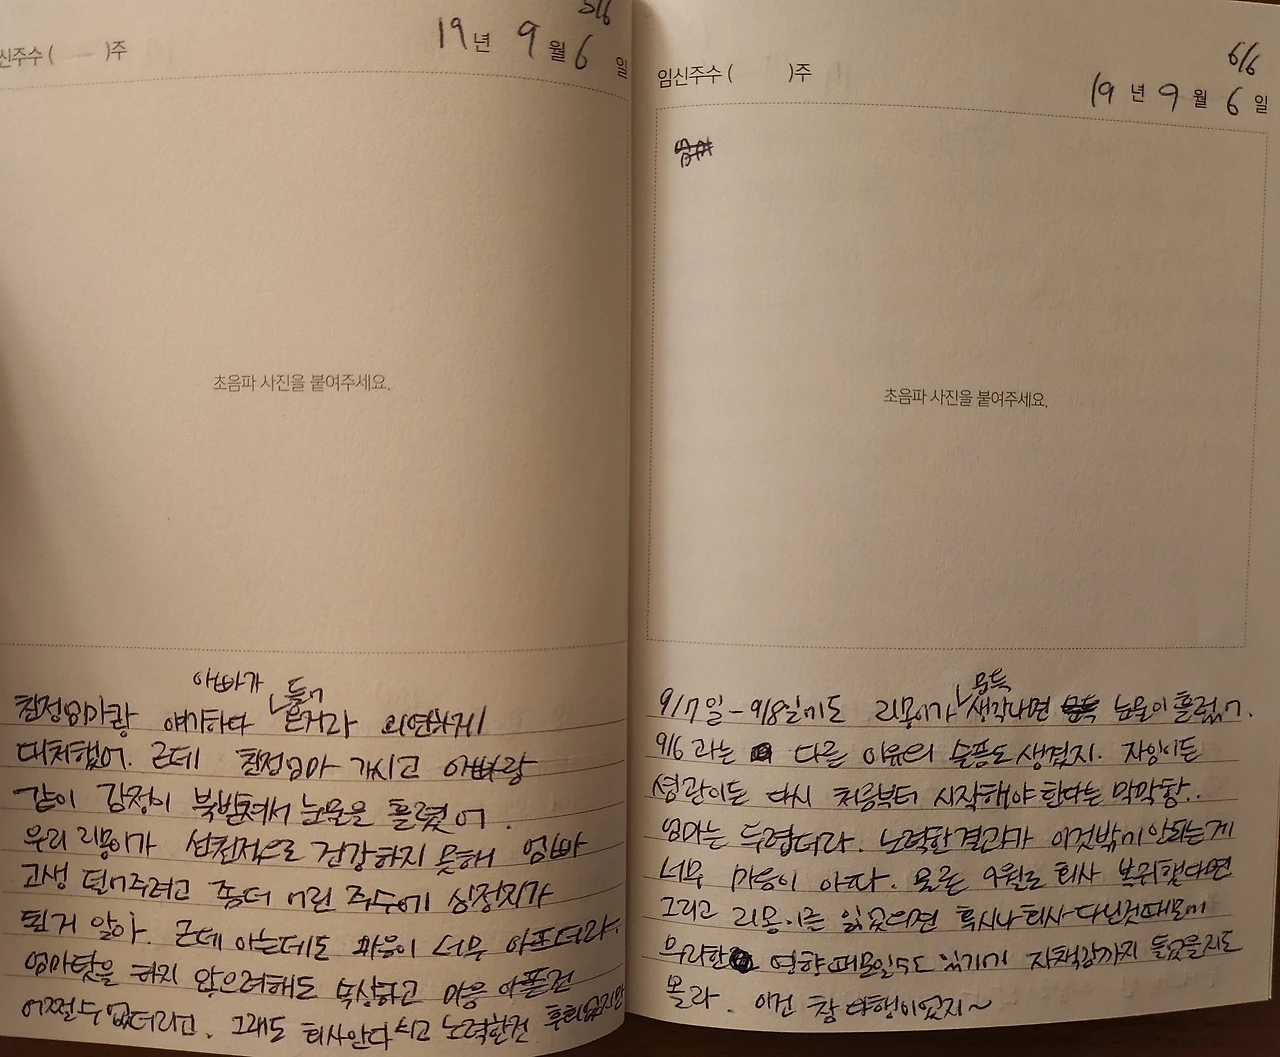 5/6
19년 9월 6일
신주수 ( )주
초음파 사진을 붙여주세요.
아빠가 들어
친정엄마랑 얘기하다 온거라 의연하게
대처했어. 근데 친정엄마 가시고 아빠랑
같이 감정이 북받쳐서 눈물을 흘렸어.
우리 리몽이가 선천적으로 건강하지 못해 엄빠
고생 덜어주려고 좀더 어린 주수에 심정지가
된거 알아. 근데 아는데도 마음이 너무 아프더라.
엄마탓을 하지 않으려해도 속상하고 마음 아픈건
어쩔수 없더라고. 그래도 회사안다시고 노력한건 후회없지만
6/6
임신주수 ( )주
19년 9월 6일
초음파 사진을 붙여주세요.
문득
9/7일-9/8일에도 리몽이가 생각나면 눈물이 흘렀어.
9/6과는 다른 이유의 슬픔도 생겼지. 자임이든
시험관이든 다시 처음부터 시작해야 한다는 막막함..
엄마는 두렵더라. 노력한 결과가 이것밖에 안되는게
너무 마음이 아파. 물론 9월로 회사 복귀했다면
그리고 리몽이를 잃었으면 혹시나 회사 다닌것 때문에
무리한 영향 때문일수도 있기에 자책감까지 들었을지도
몰라. 이건 참 다행이었지~